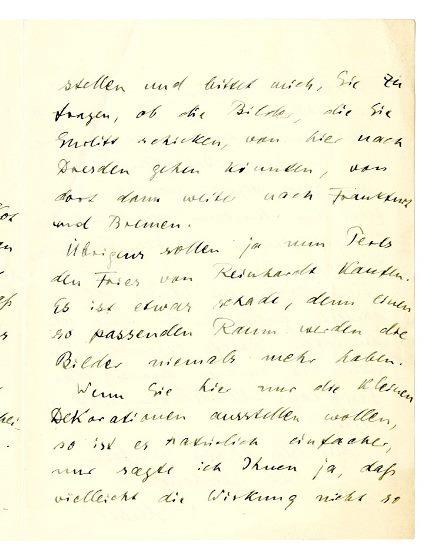 stellen und bittet mich, Sie zu
fragen, ob die Bilder, die Sie
Gurlitt schicken, von hier nach
Dresden gehen könnten, von
dort dann weiter nach Frankfurt
und Bremen.
Übrigens sollen ja nun
den Fries von Reinhardt kaufen.
Es ist etwas schade, denn einen
so passenden Raum werden die
Bilder niemals mehr haben.
Wenn Sie hier nur die kleinen
Dekorationen ausstellen wollen,
so ist es natürlich einfacher,
nur sagte ich Ihnen ja, daß
vielleicht die Wirkung nicht so